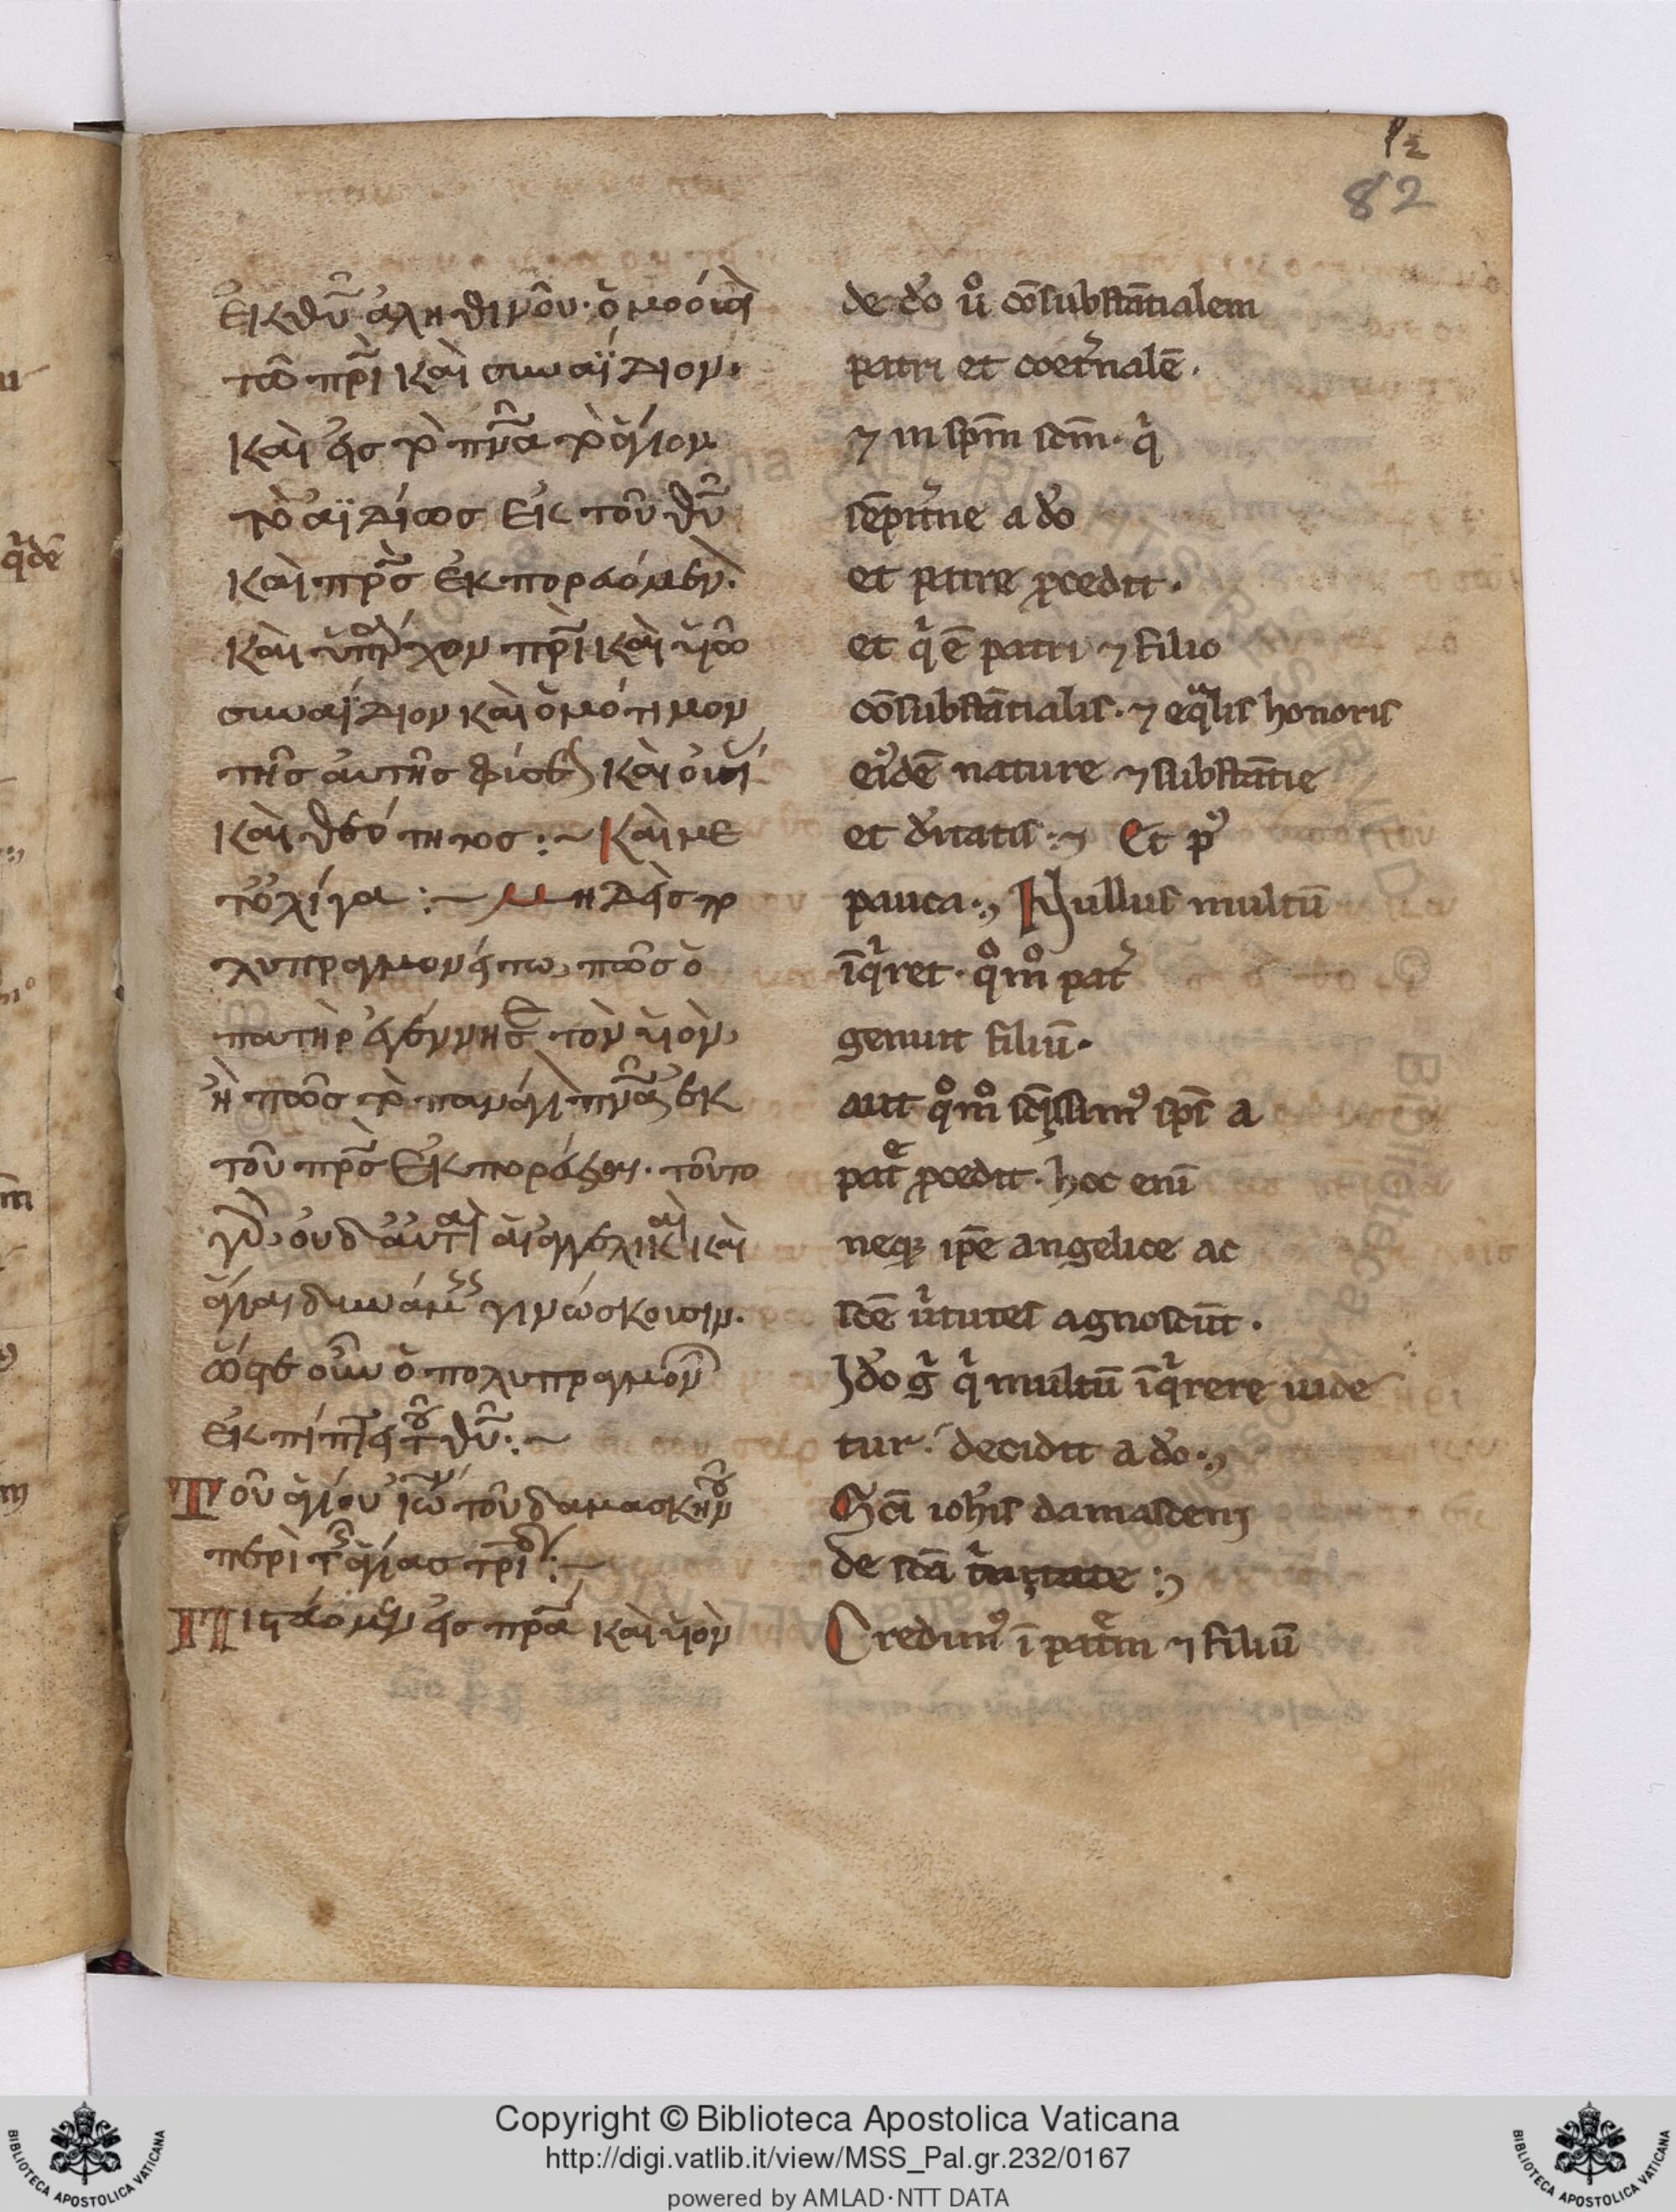 12
82
ἐκ θῦ ἀληθινοῦ· ὁμοούσι
τῶ πρὶ καὶ συναΐδιον·
καὶ εἰς τὸ πνᾶ τὸ ἅγιον
τὸ ἀϊδίως ἐκ τοῦ θῦ
καὶ πρς ἐκπορευόμεν·
καὶ ὑπάρχον πρὶ καὶ υἱῶ
συναΐδιον καὶ ὁμότιμον
τῆς αὐτῆς φύσε καὶ οὐσί
καὶ θεότητος :~ Καὶ με
τ' ὀλίγα :~ μηδεὶς πο
λυπραγμονείτω, πῶς ὁ
πατὴρ ἐγέννησε τὸν υἱὸν,
ἢ πῶς τὸ πανάγι πνᾶ ἐκ
τοῦ πρς ἐκπορεύεται. τοῦτο
γὰρ, οὐδ' αὐταὶ αἱ ἀγγελικαὶ καὶ
ἅγιαι δυνάμ γινώσκουσιν.
ὥστε οὖν ὁ πολυπραγμον
ἐκπίπτει τοῦ θῦ :~
Τοῦ ἁγίου ἰω τοῦ δαμασκηνοῦ
περὶ τῆς ἁγίας τριδ :~
Πιστεύομεν εἰς πρα καὶ υἱὸν
de do uo cōsubstātialem
patri et coet'nalē.
⁊ in spm̄ scm̄. qi
sēpit'ne a do
et patre pcedit.
et qi ē patri ⁊ filio
cōsubstātialis. ⁊ eqalis honoris
ei'dē nature ⁊ substātie
et ditatis :⁊ Et p'
pauca :, Nullus multū
īqiret. qomo pat'
genuit filiū.
aut qomo scīssim' spc a
pate pcedit. hoc eni
neq; ipe angelice ac
sce uitutes agnoscūt.
Ido gi qi multū īqirere uide
tur. decidit a do :,
Sci iohis damasceni
de sca tinitate :,
Credim' ī patem ⁊ filiū
Copyright © Biblioteca Apostolica Vaticana
http://digi.vatlib.it/view/MSS_Pal.gr.232/0167
powered by AMLAD·NTT DATA
BIBLIOTECA APOSTOLICA VATICANA
BIBLIOTECA APOSTOLICA VATICANA